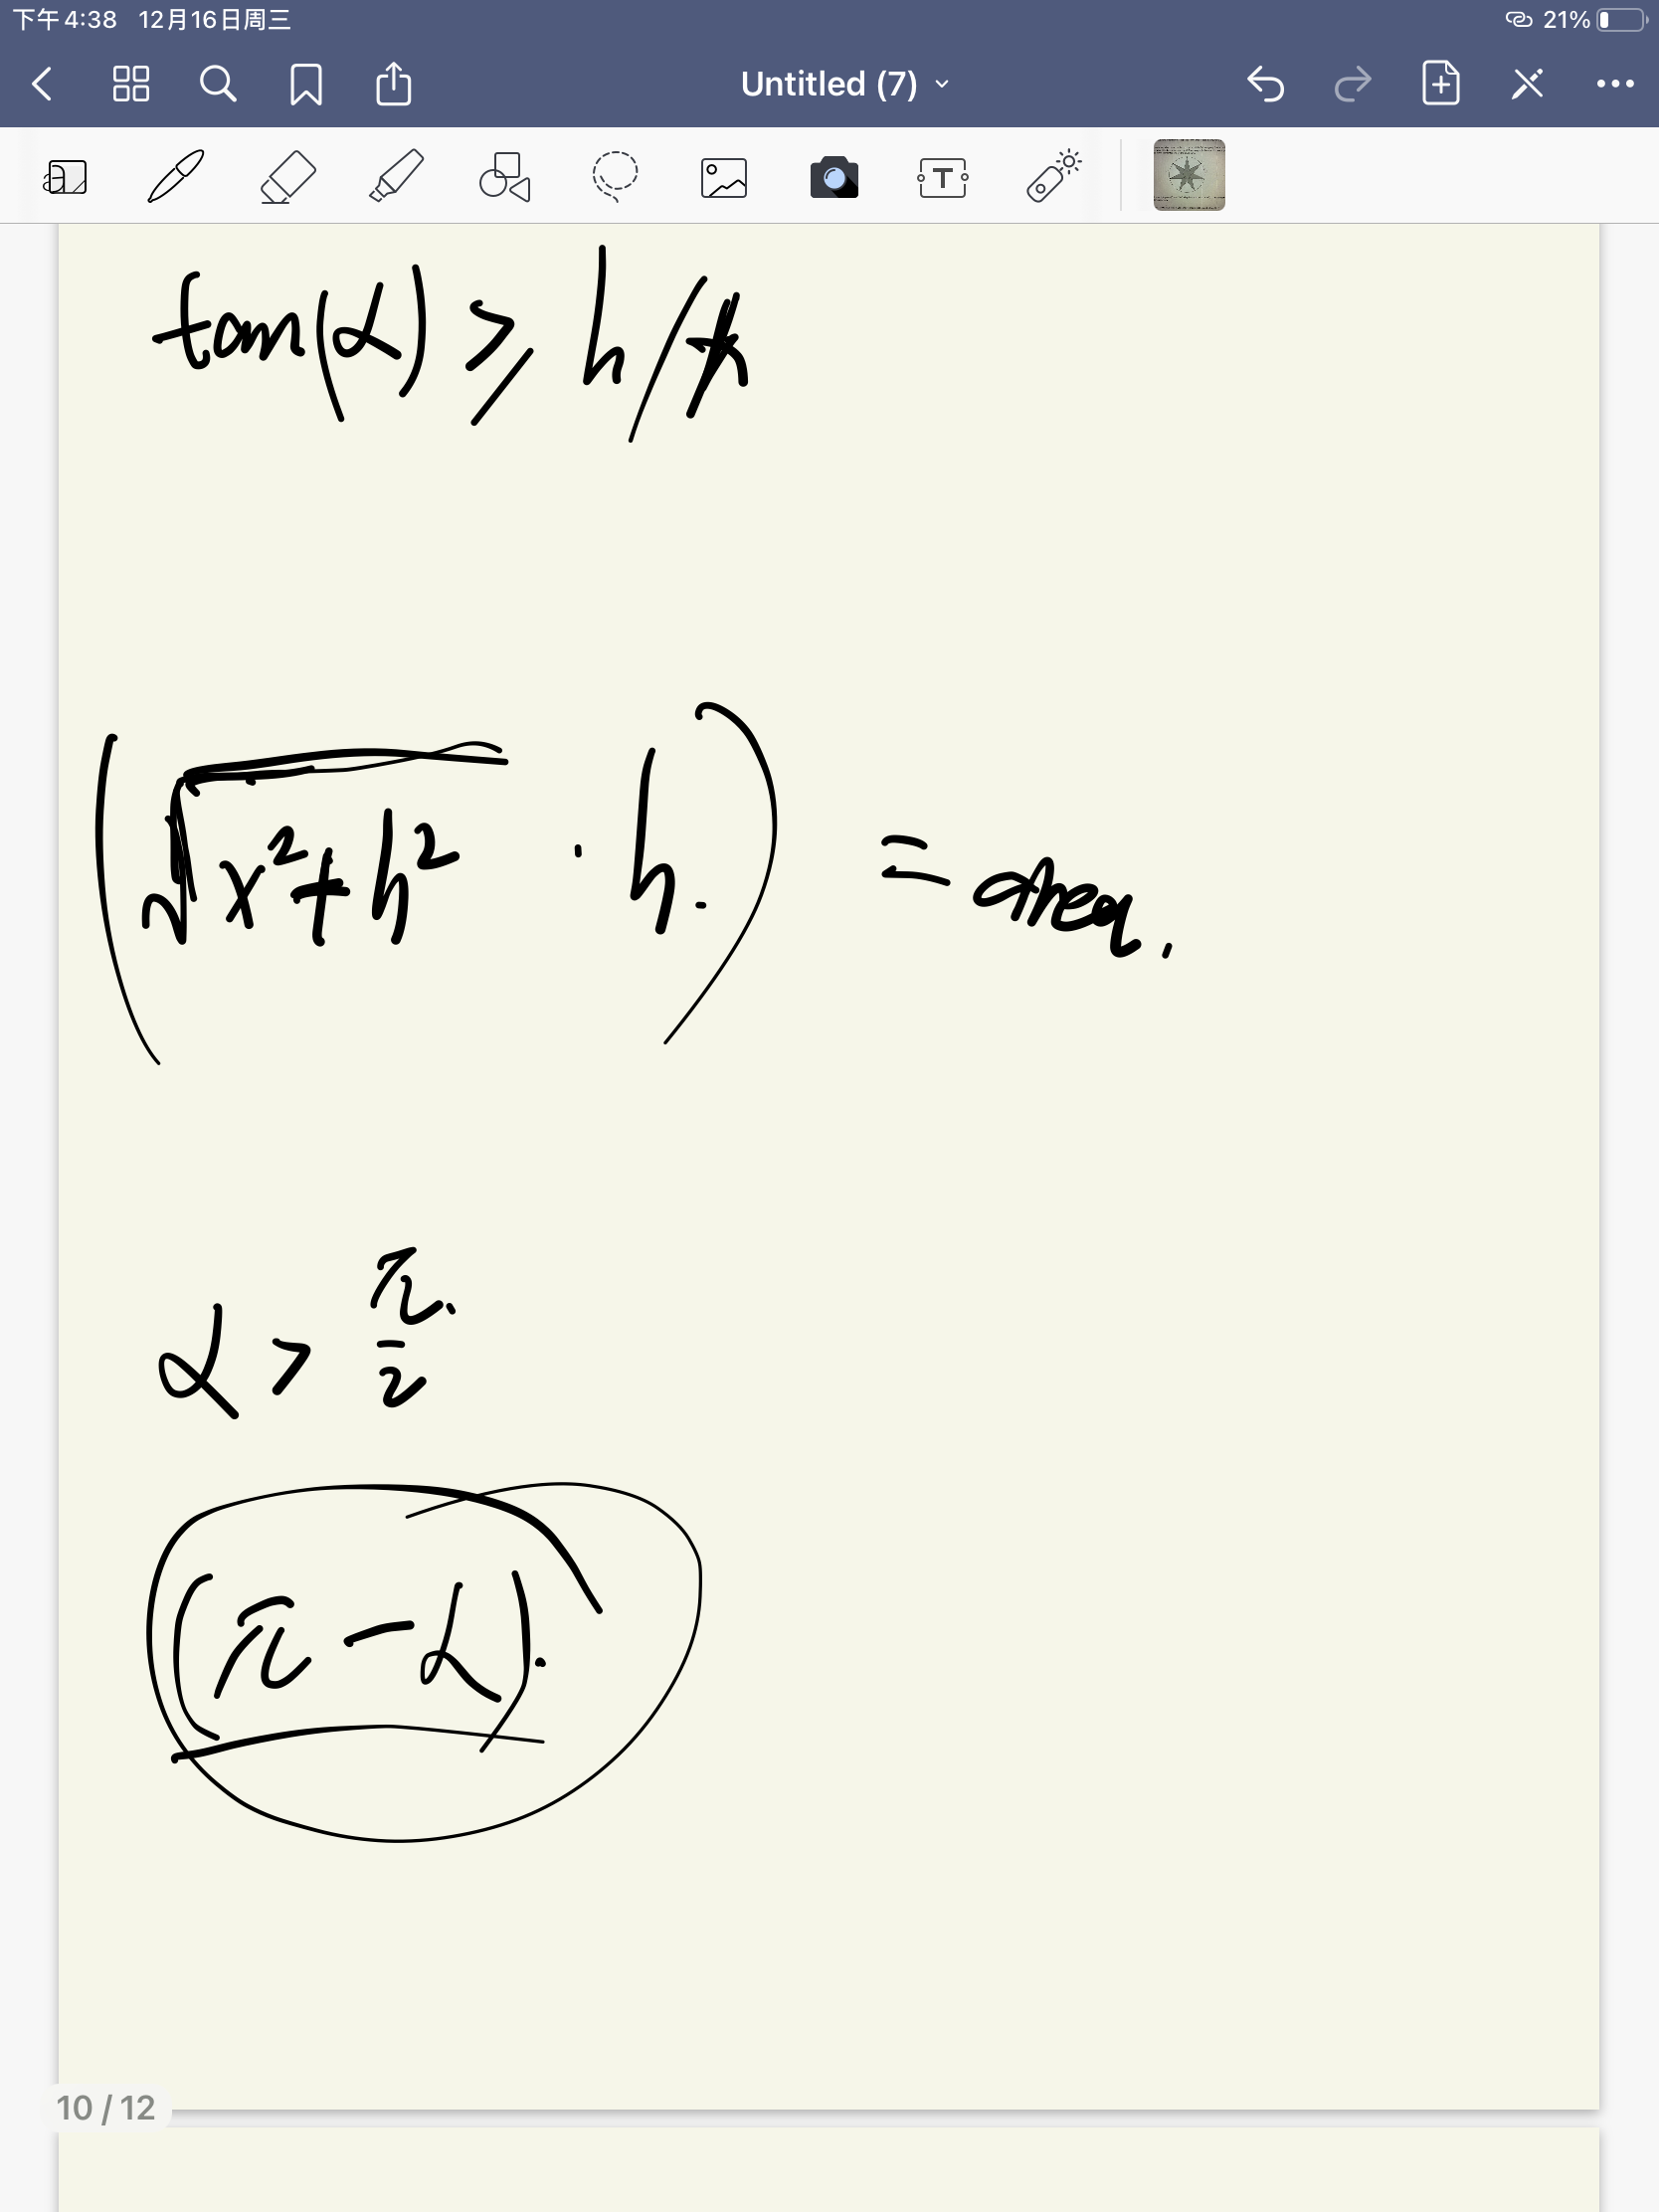 下午4:38 12月16日周三 21%
Untitled (7)
T
tan(α) ≥ h/
(√x²+h² · h.) = area.
α > π/2
(π-α).
10 / 12